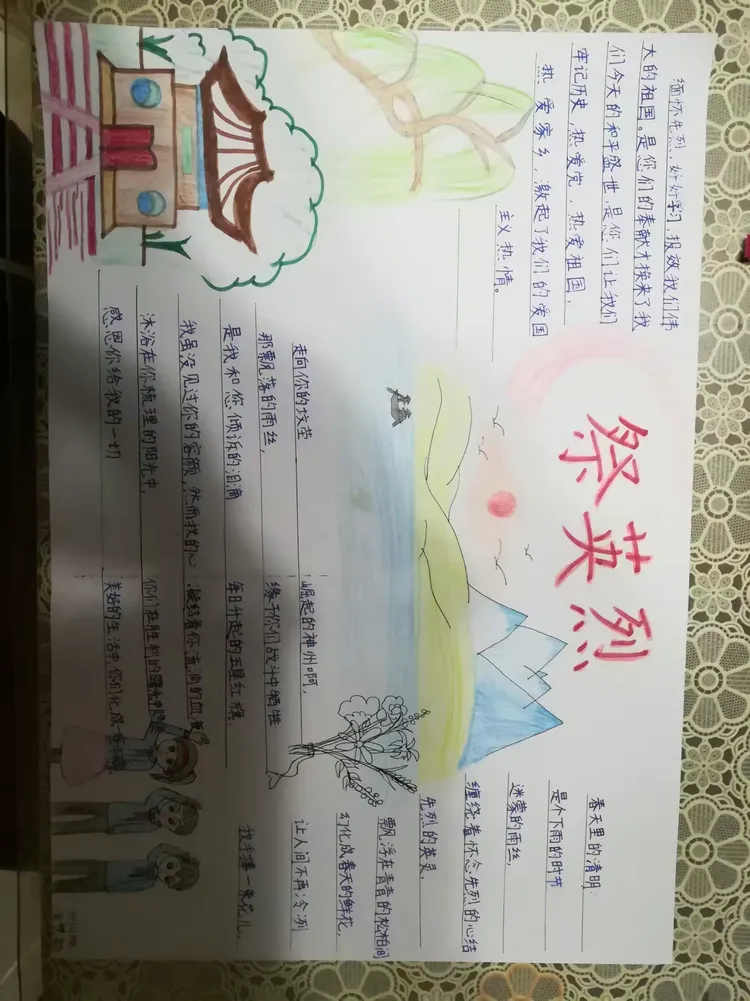 祭英烈
缅怀先烈，好好学习，报效我们伟
大的祖国。是你们的奉献才换来了我
们今天的和平盛世，是你们让我们
牢记历史，热爱党，热爱祖国，
热爱家乡，激起了我们的爱国
主义热情。
春天里的清明：
是个下雨的时节
迷蒙的雨丝，
缠绕着怀念先烈的心结
先烈的英灵，
飘浮在青青的松柏间
幻化成春天的鲜花，
让人间不再冷冽
我手捧一束花儿，
走向你的坟茔
那飘落的雨丝，
是我和你倾诉的泪滴
我虽没见过你的容颜，然而我的心
沐浴在你梳理的阳光中
感恩你给我的一切
崛起的神州啊，
缘于你们战斗中牺牲
每日升起的五星红旗，
凝结着你流淌的血
你们在胜利的曙光中
美好的生活中，你们化成